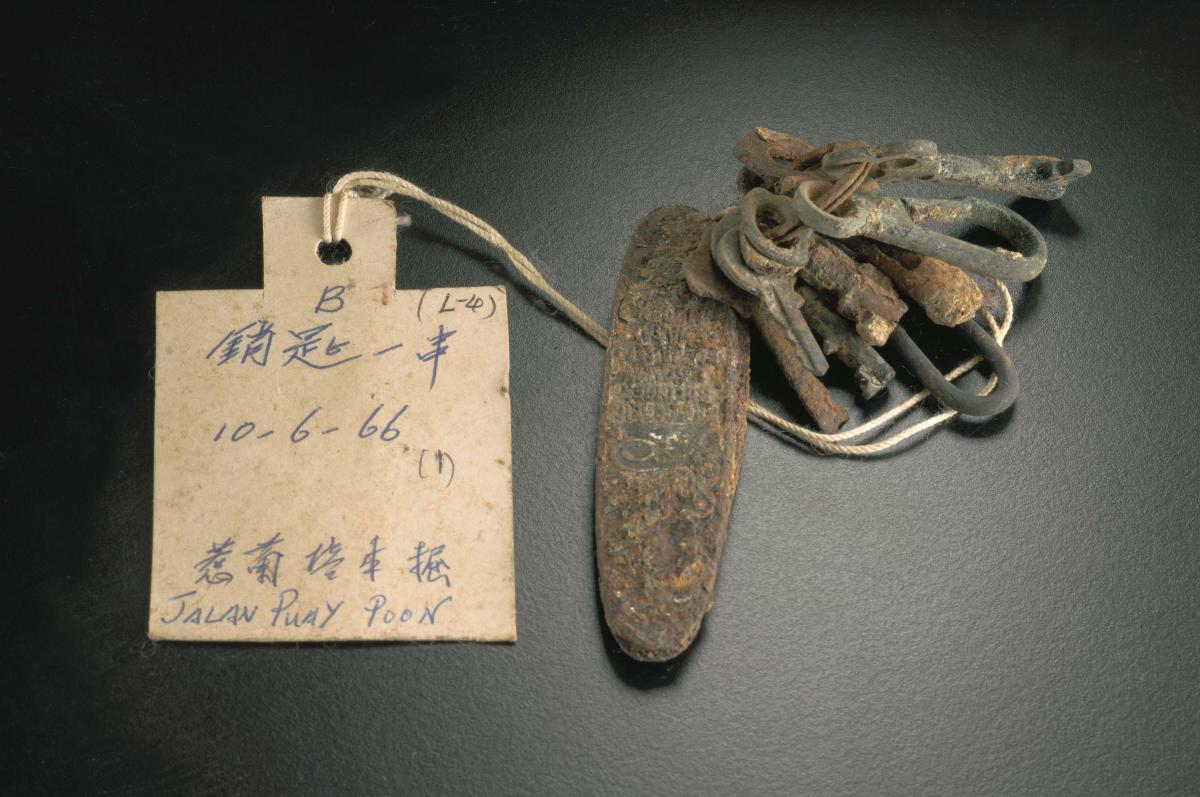 B (L-4)
銷匙一串
10-6-66
(1)
惹蘭培本掘
JALAN PUAY POON